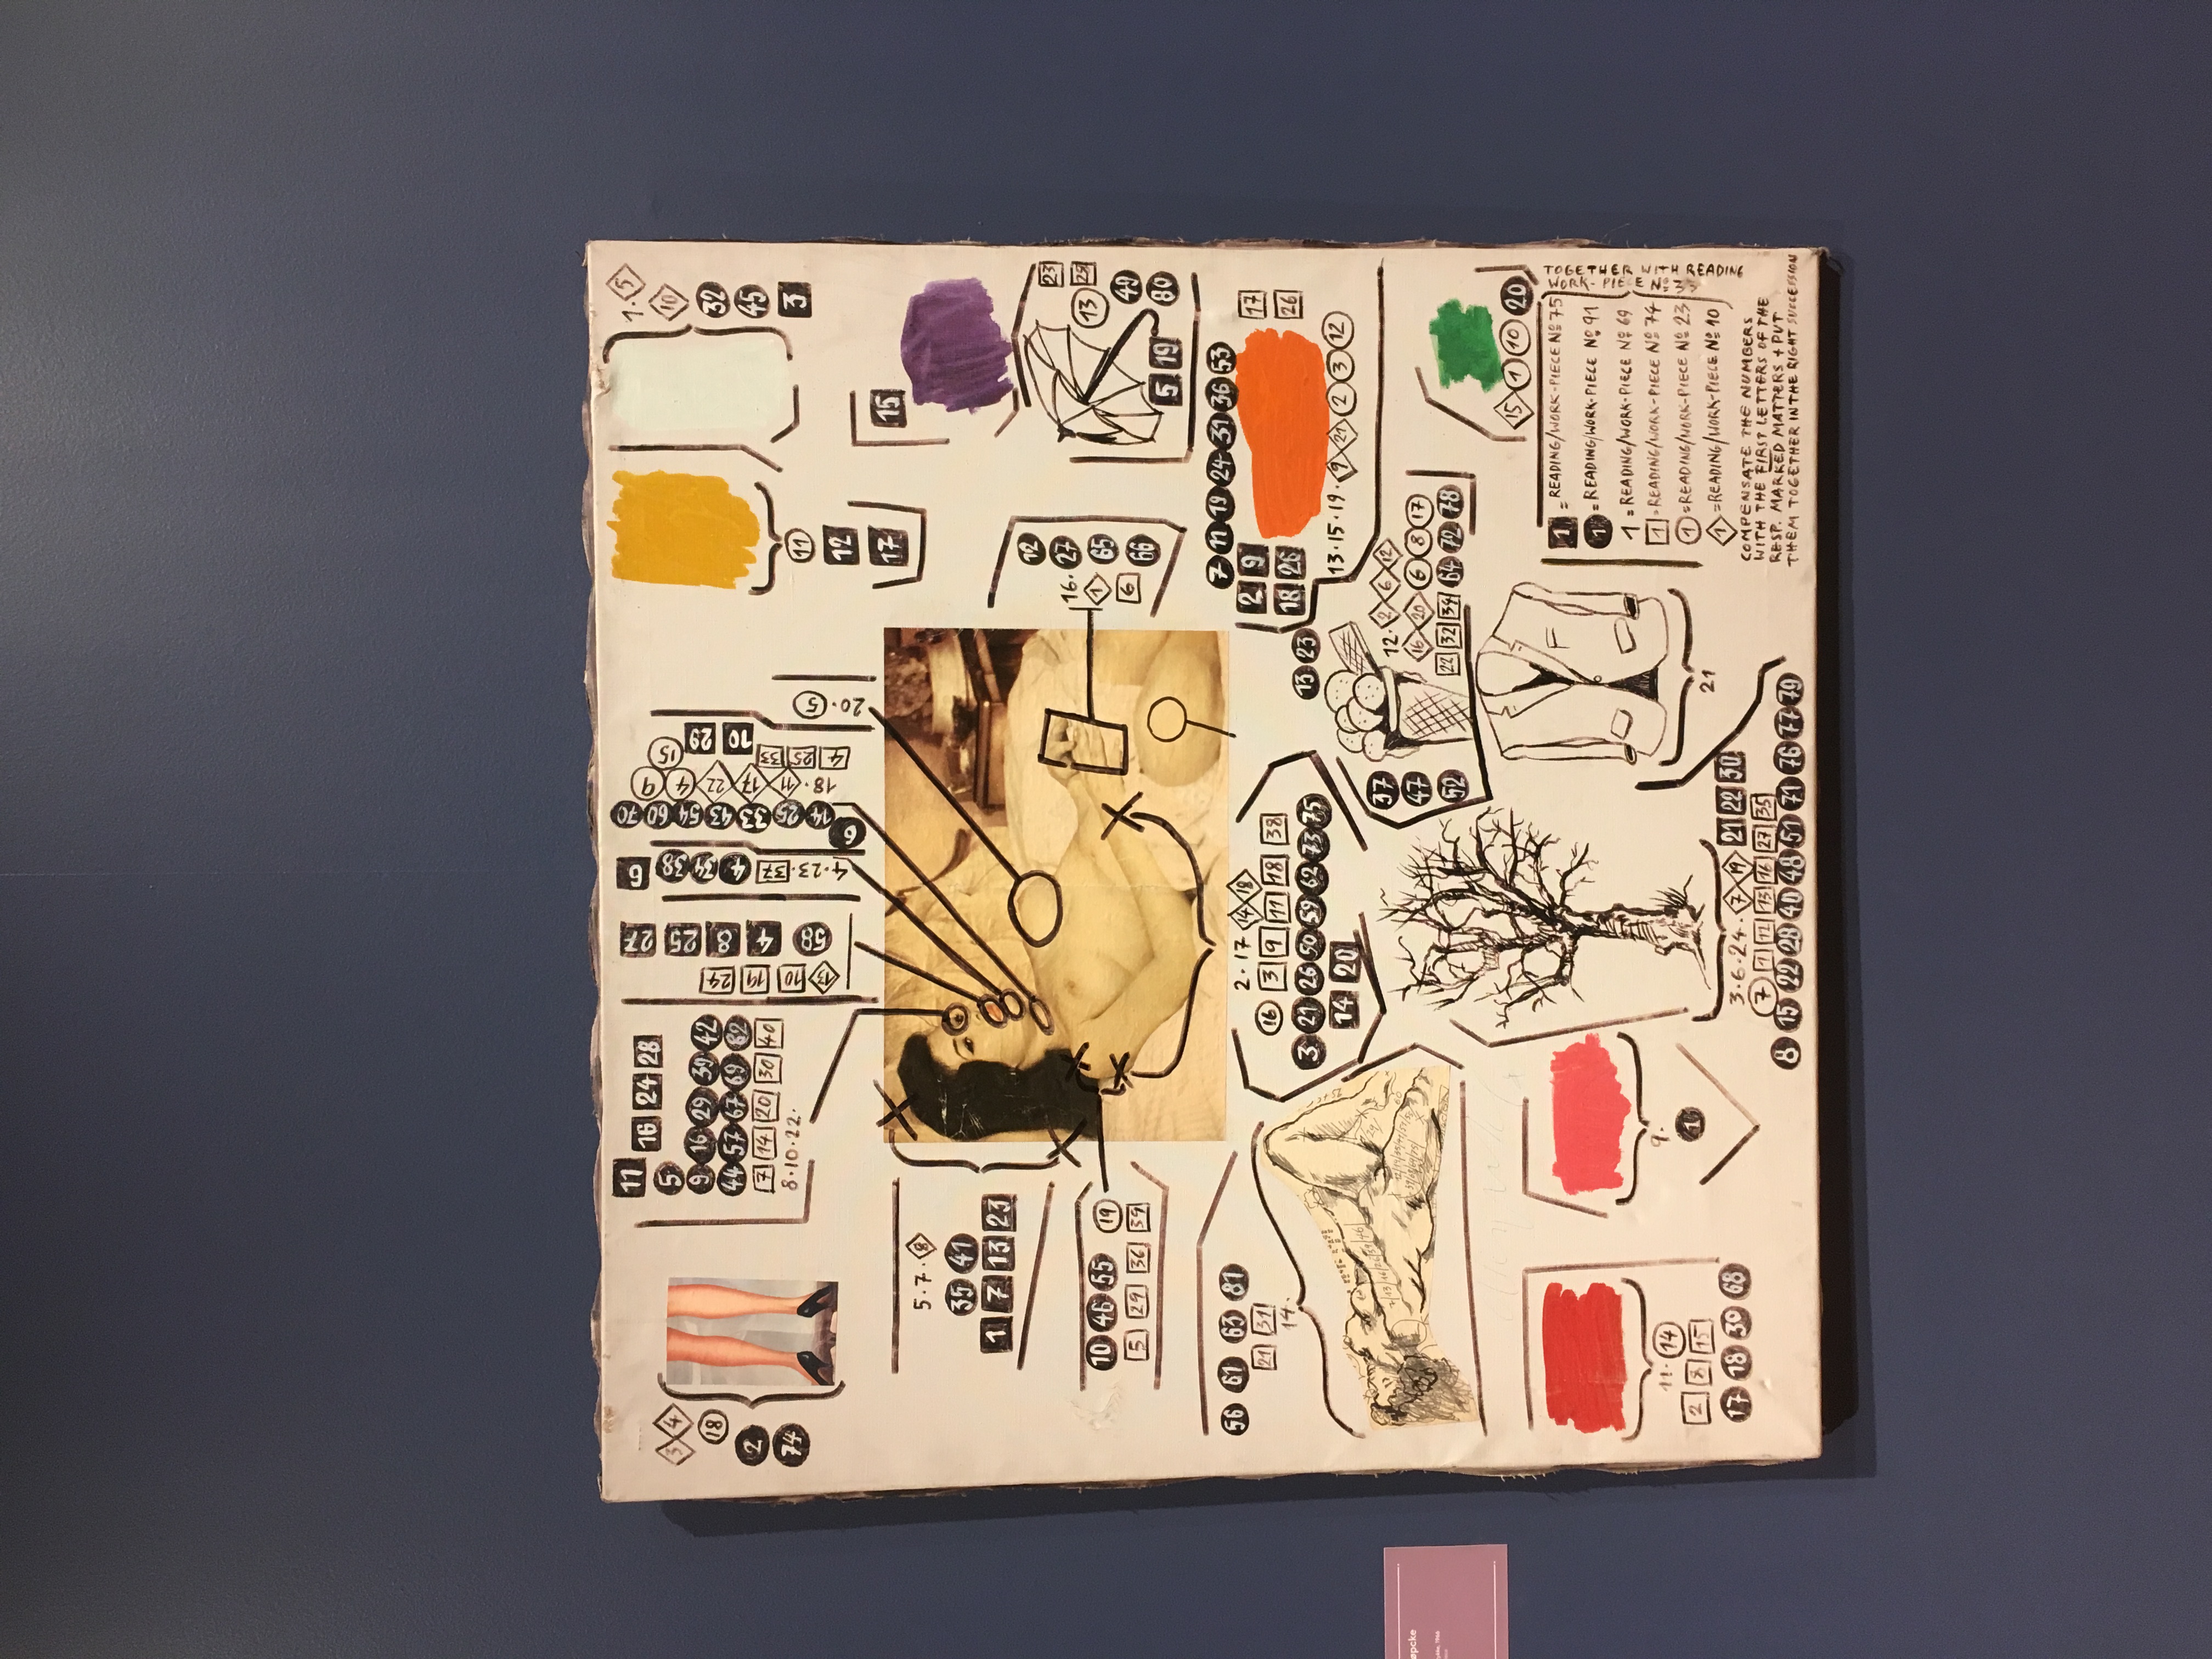 11
16 24 28
3 4
5
18
9 16 29 39 42
2
44 57 67 69 82
74
7 14 20 30 40
8.10.22.
13 10 19 24
58 4 8 25 27
4.23.37
4 34 38 6
6 14 25 33 43 54 60 70
18. 11 17 22 4 9
4 25 33 10 29 15
20. 5
11
12
17
1. 5
10
32
45
3
15
5.7. 8
35 41
1 7 13 23
10 46 55 19
5 29 36 39
12
16. 27
1 65
6 66
23
13 28
49
5 19 80
56 61 63 81
21 31
14.
2.17 14 18
16 3 9 11 18 38
3 21 26 50 59 62 73 75
14 20
7 11 19 24 31 36 53
2 9 17
18 26 26
13.15.19. 9 21 2 3 12
13 23
37
47
52
12. 2 6 12
16 20 6 8 17
22 32 34 64 72 78
15 1 10 20
11. 14
2 8 15
17 18 30 68
9.
1
3.6.24. 7 19 21 22 30
7 1 12 13 16 27 35
8 15 22 28 40 48 51 71 76 77 79
F
21
1 = READING/WORK-PIECE No 75
1 = READING/WORK-PIECE No 91
1 = READING/WORK-PIECE No 69
1 = READING/WORK-PIECE No 74
1 = READING/WORK-PIECE No 23
1 = READING/WORK-PIECE No 10
TOGETHER WITH READING
WORK-PIECE No 33
COMPENSATE THE NUMBERS
WITH THE FIRST LETTERS OF THE
RESP. MARKED MATTERS + PUT
THEM TOGETHER IN THE RIGHT SUCCESSION
øpcke
1966